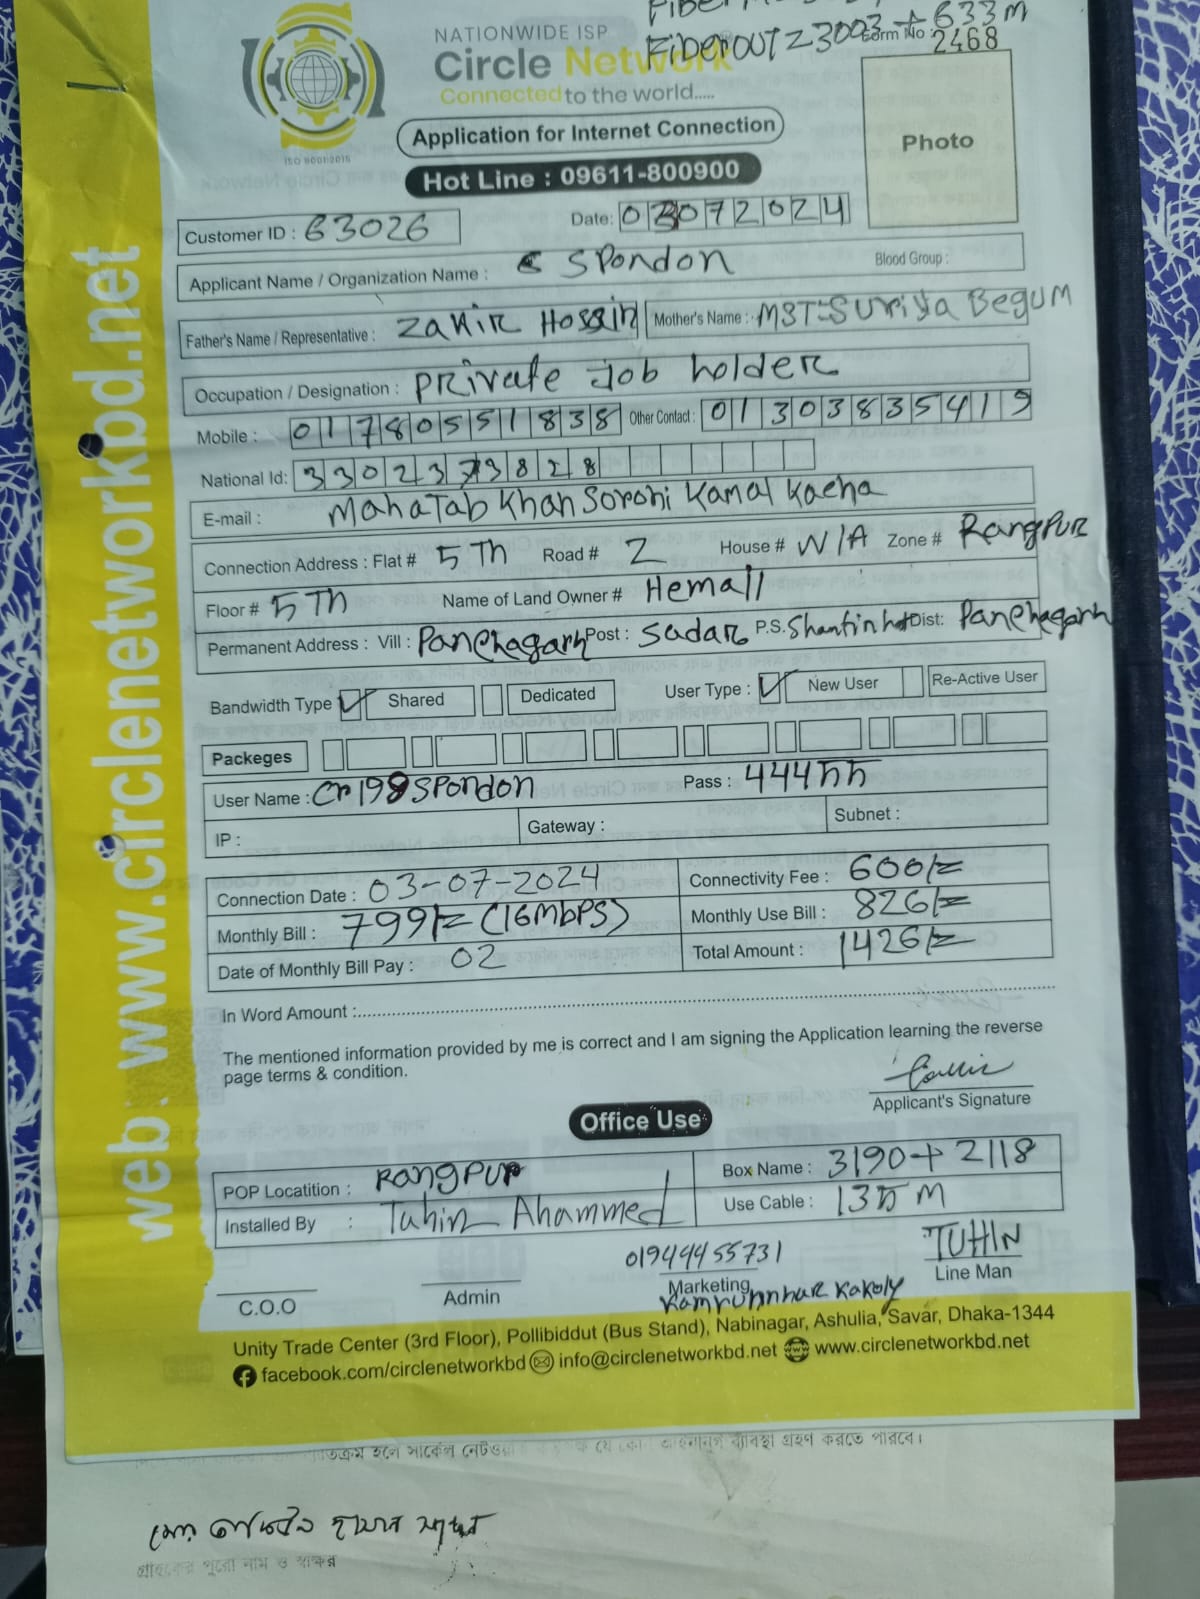 NATIONWIDE ISP
Circle Network
Connected to the world.....
Fiber OUT Z 3093 + 633 M
Form No : 2468
ISO 9001:2015
Application for Internet Connection
Hot Line : 09611-800900
Photo
Customer ID : 63026
Date: 03072024
Applicant Name / Organization Name : Spondon
Blood Group :
Father's Name / Representative : Zakir Hossin
Mother's Name : MST-Suriya Begum
Occupation / Designation : Private Job holder
Mobile : 01780551838
Other Contact : 01303835419
National Id: 3302373828
E-mail : Mahatab Khan Soroni Kamal Kacna
Connection Address : Flat # 5 Th Road # 2 House # N/A Zone # Rangpur
Floor # 5 Th Name of Land Owner # Hemall
Permanent Address : Vill : Panchagarh Post : Sadar P.S. Dist: Panchagarh
Bandwidth Type Shared Dedicated User Type : New User Re-Active User
Packeges
User Name : Cn198spondon Pass : 44455
IP : Gateway : Subnet :
Connection Date : 03-07-2024 Connectivity Fee : 600/=
Monthly Bill : 799/= (16Mbps) Monthly Use Bill : 826/=
Date of Monthly Bill Pay : 02 Total Amount : 1426/=
In Word Amount :
The mentioned information provided by me is correct and I am signing the Application learning the reverse
page terms & condition.
Applicant's Signature
Office Use
POP Locatition : Rangpur Box Name : 3190 + 2118
Installed By : Tuhin Ahammed Use Cable : 135 M
01944455731
TUHIN
C.O.O Admin Marketing Line Man
Kamrunnhar Kakoly
Unity Trade Center (3rd Floor), Pollibiddut (Bus Stand), Nabinagar, Ashulia, Savar, Dhaka-1344
facebook.com/circlenetworkbd info@circlenetworkbd.net www.circlenetworkbd.net
web : www.circlenetworkbd.net
ব্যবস্থা গ্রহণ করতে পারবে।
গ্রাহকের পুরো নাম ও স্বাক্ষর